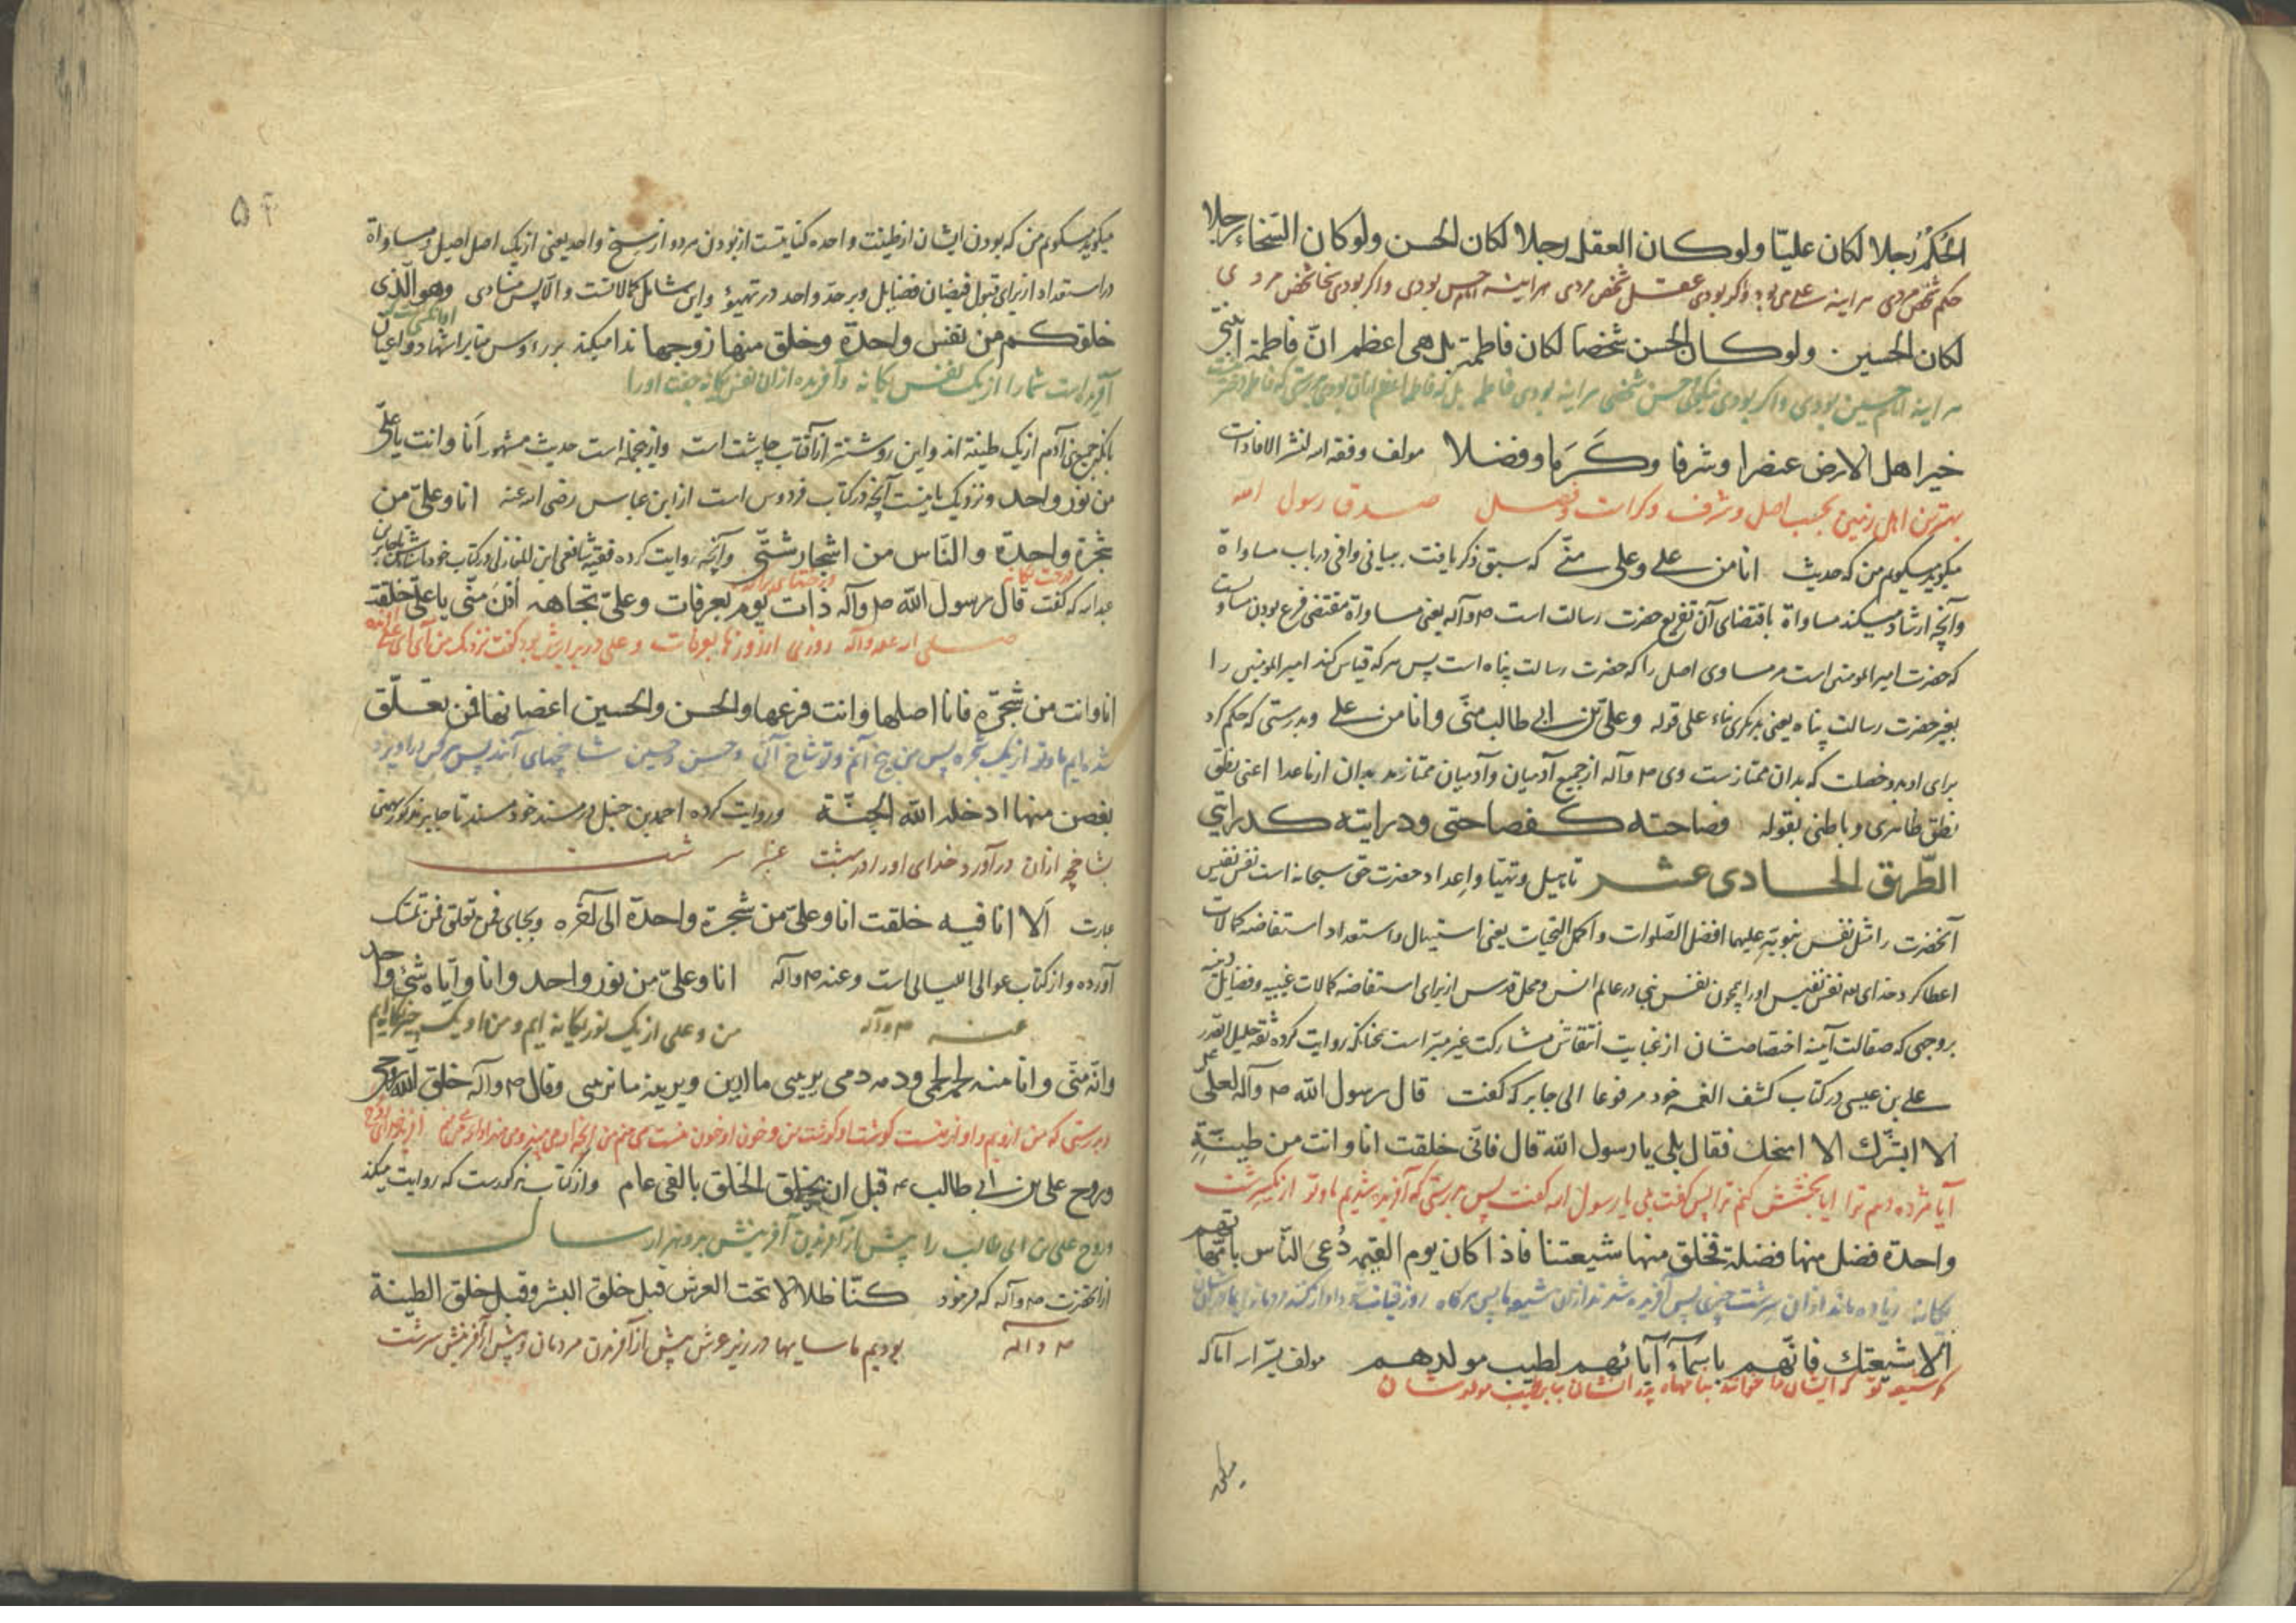 الحكم رجلا لكان عليّا ولو كان العقل رجلا لكان الحسن ولو كان السخاء رجلا
حکم شخص مردی هر اینه علی بود و اگر بودی عقل شخص مردی هر اینه امام حسن بودی و اگر بودی سخا شخص مردی
لكان الحسين ولو كان الحسن شخصا لكان فاطمة بل هی اعظم انّ فاطمة ابنتی
هر اینه امام حسین بودی و اگر بودی نیکویی حسن شخصی هر اینه بودی فاطمه بل که فاطمه اعظم از ان بودی بدرستی که فاطمه دختر
خير اهل الارض عنصرا وشرفا وكَرَما وفضلا مولف وفقه الله لنشر الافادات
بهترین اهل زمین بحسب اصل و شرف و کرامت و فضل صدق رسول الله
میگوید میگویم من که حدیث انا من علی وعلی منّی که سبق ذکر یافت بیانی وافی در باب مساواة
وآنچه ارشاد میکند مساواة باقتضای آن تفریع حضرت رسالت است ص وآله یعنی مساواة مقتضی فرع بودن
که حضرت امیر المومنین است مر مساوی اصل را که حضرت رسالت پناه است پس هر که قیاس کند امیر المومنین را
بغیر حضرت رسالت پناه یعنی بدیگری بناء علی قوله وعلیّ بن ابی طالب منّی وانا من علی وبدرستی که حکم کرد
برای او بدو خصلت که بدان ممتاز ست وی ص وآله از جمیع آدمیان وآدمیان ممتازند بدان از ما عدا اعنی نطق
نطق ظاهری و باطنی بقوله فصاحته كفصاحتی ودرايته كدرايتی
الطّريق الحادی عشر تاهیل وتهیّا واعداد حضرت حق سبحانه است نفس نفیس
آنحضرت را مثل نفس نبویّه علیهما افضل الصّلوات واکمل التحیات یعنی استیهال واستعداد استفاضه کمالات
اعطا کرد خدای نفس نفیس او را همچون نفس نبی در عالم انس ومحل قدس از برای استفاضه کمالات غیبیه وفضایل
بروجهی که صقالت آینه اختصاصشان از غبایت انتقاش مشارکت غیر مبرّاست چنانکه روایت کرده ثقه جلیل القدر
علی بن عیسی در کتاب کشف الغمه خود مرفوعا الی جابر که گفت قال رسول الله ص وآله لعلیّ
الا ابشّرك الا امنحك فقال بلی يا رسول الله قال فانّی خلقت انا وانت من طينة
آیا مژده دهم ترا ایا بخشش کنم ترا پس گفت بلی یا رسول الله گفت پس بدرستی که آفریده شدیم ما و تو از یک سرشت
واحدة فضل منها فضلة فخلق منها شيعتنا فاذا كان يوم القيمه دُعیَ النّاس بامّهاتهم
یکانه زیاده ماند از ان سرشت چیزی پس آفریده شدند از ان شیعه ما پس هر گاه روز قیامت شود
الّا شيعتك فانّهم باسمآء آبائهم لطيب مولدهم مولف یسّر الله آماله
مگر شیعه تو که ایشان را خوانند بنامهاء پدر ایشان بنابر طیب مولد شان
میگوید
۵۴
میگوید میگویم من که بودن ایشان از طینت واحده کنایتست از بودن هر دو از سنخ واحد یعنی از یک اصل اصیل ومساواة
در استعداد از برای قبول فیضان فضایل وبر حدّ واحد در تهیؤ واین شامل کمالاتست والّا پس منادی وهو الّذی
خلقكم من نفس واحدة وخلق منها زوجها ندا میکند بر رءوس منابر اشهاد واعیان
آفریده است شما را از یک نفس یکانه وآفریده از ان نفس یکانه جفت او را
بانکه جمیع بنی آدم از یک طینة اند واین روشنتر از آفتاب چاشت است واز جمله است حدیث مشهور اَنا وانت یا علیّ
من نور واحد ونزدیک باینست آنچه در کتاب فردوس است از ابن عباس رضی الله عنه انا وعلیّ من
شجرة واحدة والنّاس من اشجار شتّی وآنچه روایت کرده فقیه شافعی ابن المغازلی در کتاب خود
درخت یکانه ودرختهای پراکنده
عبد الله که گفت قال رسول الله ص وآله ذات يوم بعرفات وعلیّ تجاهه اُدْنُ منّی يا علیّ خلقت
صلی الله علیه وآله روزی از روزها بعرفات وعلی در برابرش بود گفت نزدیک من آی ای علی
انا وانت من شجرة فانا اصلها وانت فرعها والحسن والحسين اغصانها فمن تعلّق
شدیم ما وتو از یک شجره پس من بیخ آنم وتو شاخ آنی وحسن وحسین شاخچهای آنند پس هر کس در آویزد
بغصن منها ادخله الله الجنّة وروایت کرده احمد بن حنبل در مسند خود مسند تا جابر مذکور بهمین
بشاخچه از ان در آورد خدای او را در بهشت عنبر سرشت
عبارت اَلا انا فیه خلقت انا وعلیّ من شجرة واحدة الی آخره وبجای فمن تعلق فمن تمسّك
آورده واز کتاب عوالی اللیالی است وعنه ص وآله انا وعلیّ من نور واحد وانا وايّاه شیء واحد
عنه ص وآله من وعلی از یک نور یکانه ایم ومن او یک چیز یکانه ایم
وانّه منّی وانا منه لحمه لحمی ودمه دمی يريبنی ما رابه ويريبه ما رابنی وقال ص وآله خلق الله روحی
وبدرستی که من از ویم واو از منست گوشت او گوشت من وخون او خون منست
وروح علی بن ابی طالب ع قبل ان يخلق الخلق بالفی عام واز کتاب مذکورست که روایت میکند
وروح علی بن ابی طالب را پیش از آفریدن آفرینش بدو هزار سال
از انحضرت ص وآله که فرمود كنّا ظلالا تحت العرش قبل خلق البشر وقبل خلق الطينة
ص وآله بودیم ما سایها در زیر عرش پیش از آفریدن مردمان وپیش از آفرینش سرشت